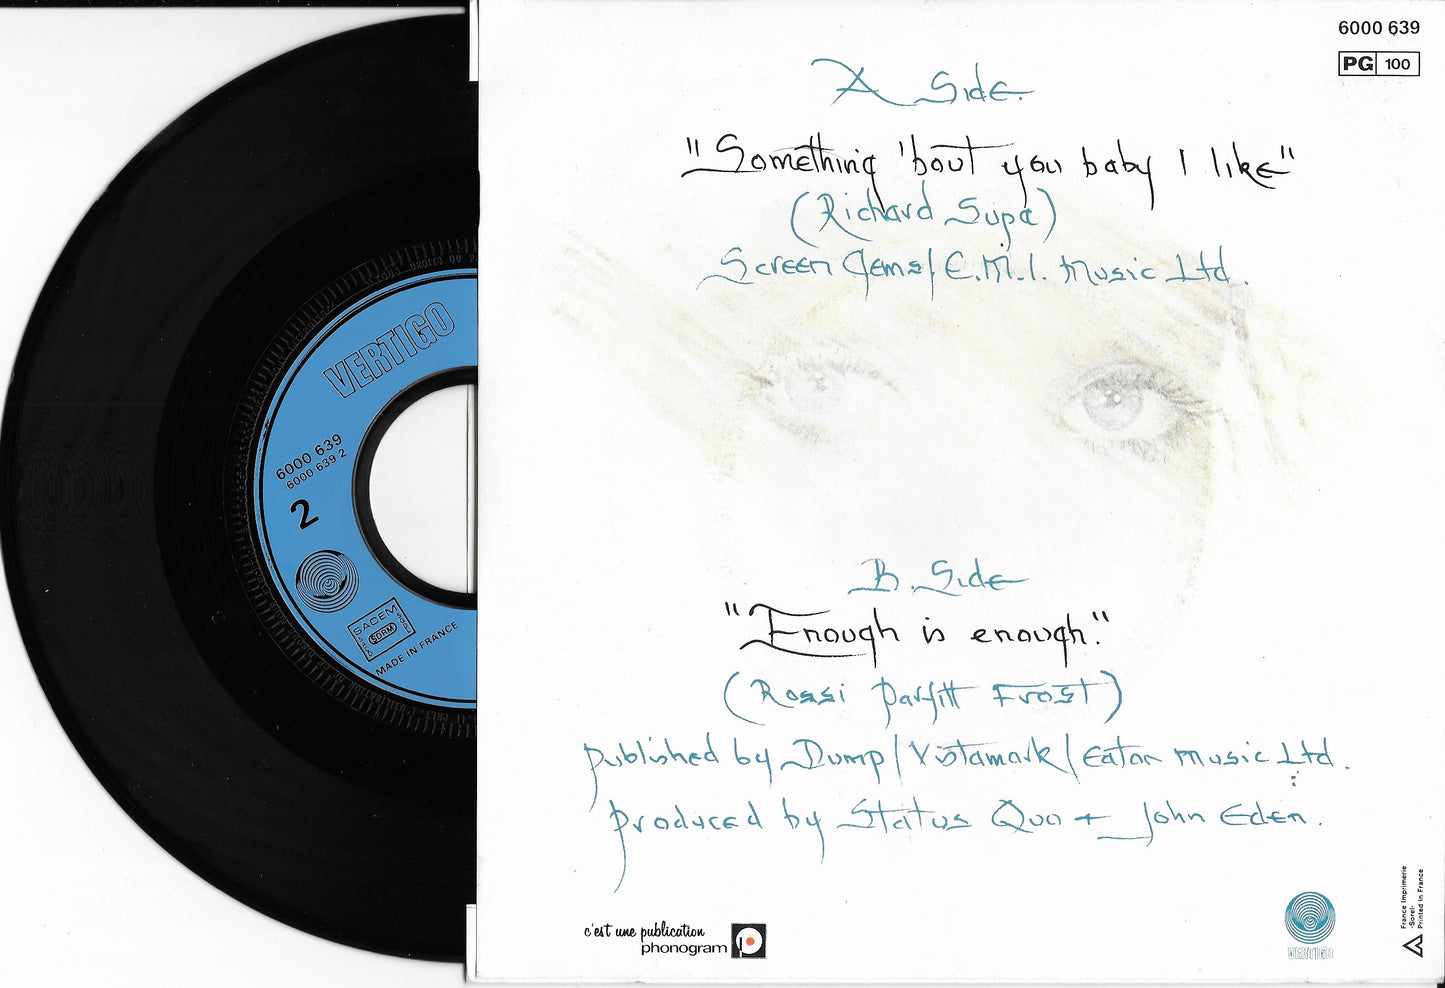 6000 639
PG 100
A Side.
"Something 'bout you baby I like"
(Richard Supa)
Screen Gems/E.M.I. Music Ltd.
VERTIGO
6000 639
6000 639 2
2
SACEM
SDRM
SACD
SGDL
MADE IN FRANCE
B. Side
"Enough is enough."
(Rossi Parfitt Frost)
published by Dump/Vistamark/Eaton Music Ltd.
produced by Status Quo + John Eden.
c'est une publication
phonogram
VERTIGO
France Imprimerie
-Sorel-
Printed in France